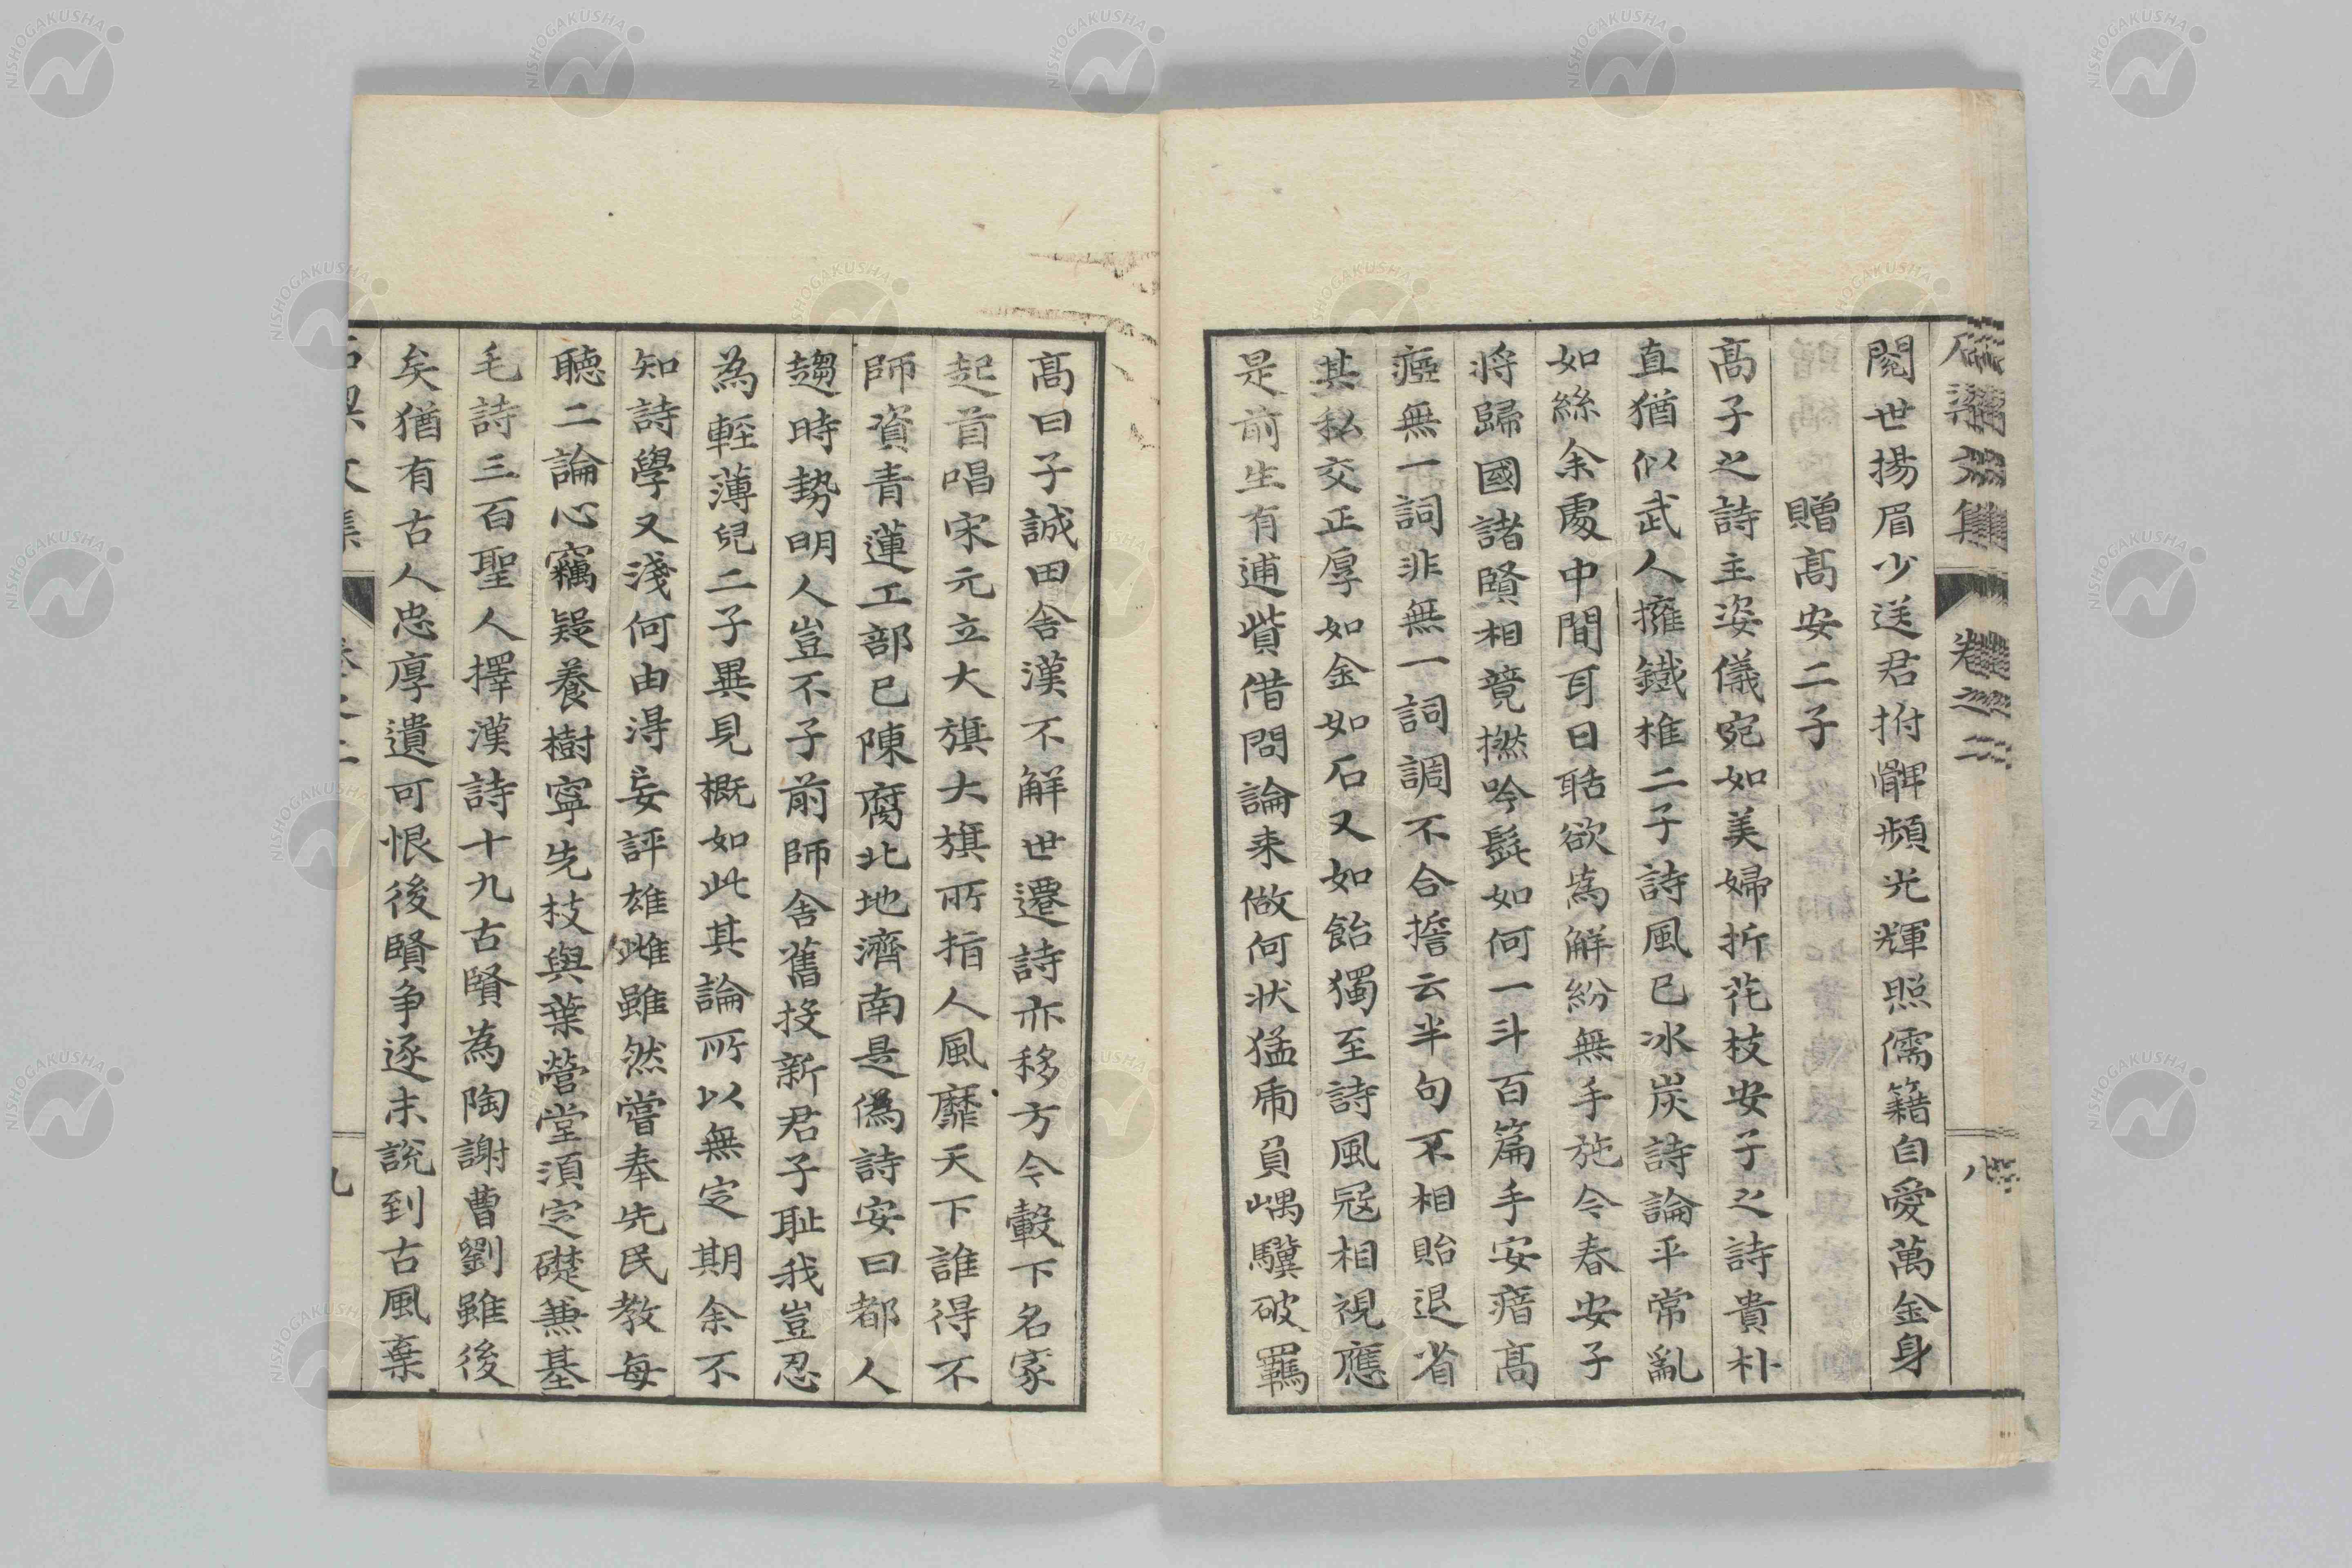 閱世揚眉少送君拊髀頻光輝照儒籍自愛萬金身
贈髙安二子
髙子之詩主姿儀宛如美婦折花枝安子之詩貴朴
直猶似武人擁鐵椎二子詩風已冰炭詩論平常亂
如絲余處中間耳日聒欲爲解紛無手施今春安子
将歸國諸賢相竟撚吟髭如何一斗百篇手安瘖髙
瘂無一詞非無一詞調不合擔云半句不相貽退省
其私交正厚如金如石又如飴獨至詩風冦相視應
是前生有逋貲借問論来做何状猛乕負嵎驥破羈
髙曰子誠田舎漢不解世遷詩亦移方今轂下名家
起首唱宋元立大旗大旗所指人風靡天下誰得不
師資青蓮工部已陳腐北地濟南是偽詩安曰都人
趨時勢明人豈不子前師舎舊投新君子耻我豈忍
為輕薄兒二子異見概如此其論所以無定期余不
知詩學又淺何由淂妄評雄雌雖然嘗奉先民教每
聽二論心竊疑養樹寧先枝與葉營堂須定礎兼基
毛詩三百聖人擇漢詩十九古賢為陶謝曹劉雖後
矣猶有古人忠厚遺可恨後賢争逐末説到古風棄
卷之二
八
NISHOGAKUSHA